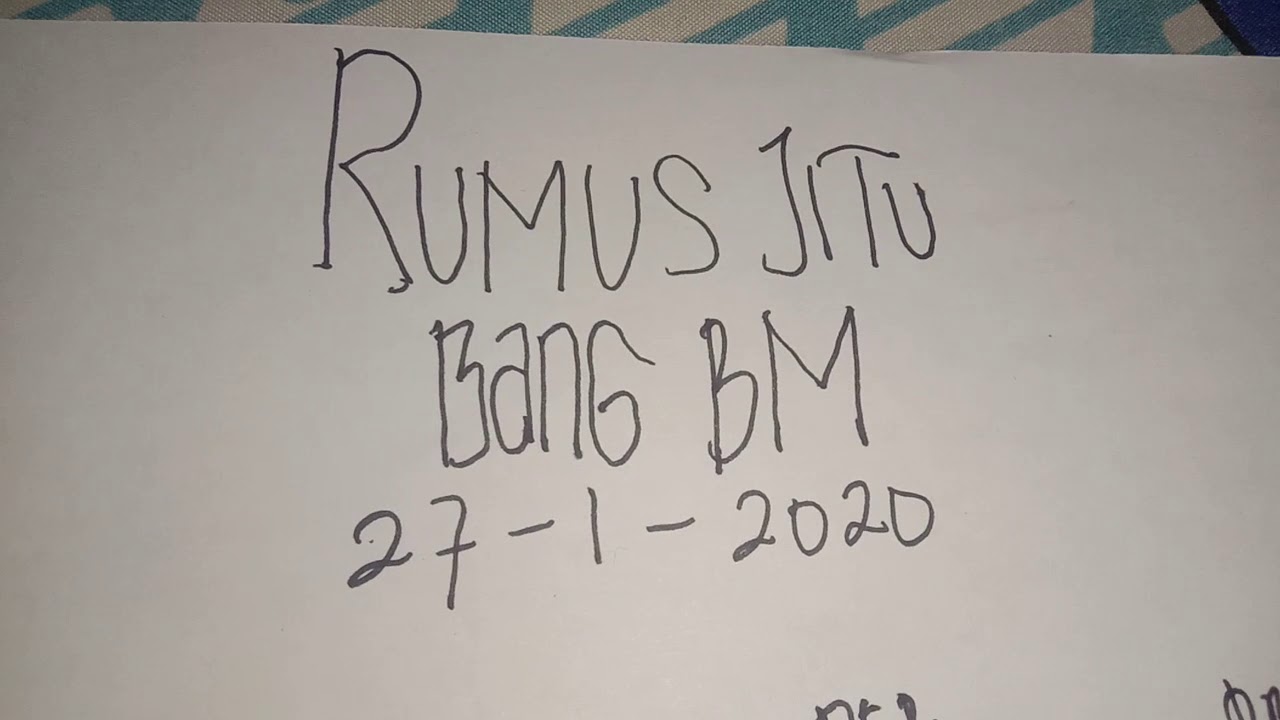 RUMUS JITU
BANG BM
27-1-2020